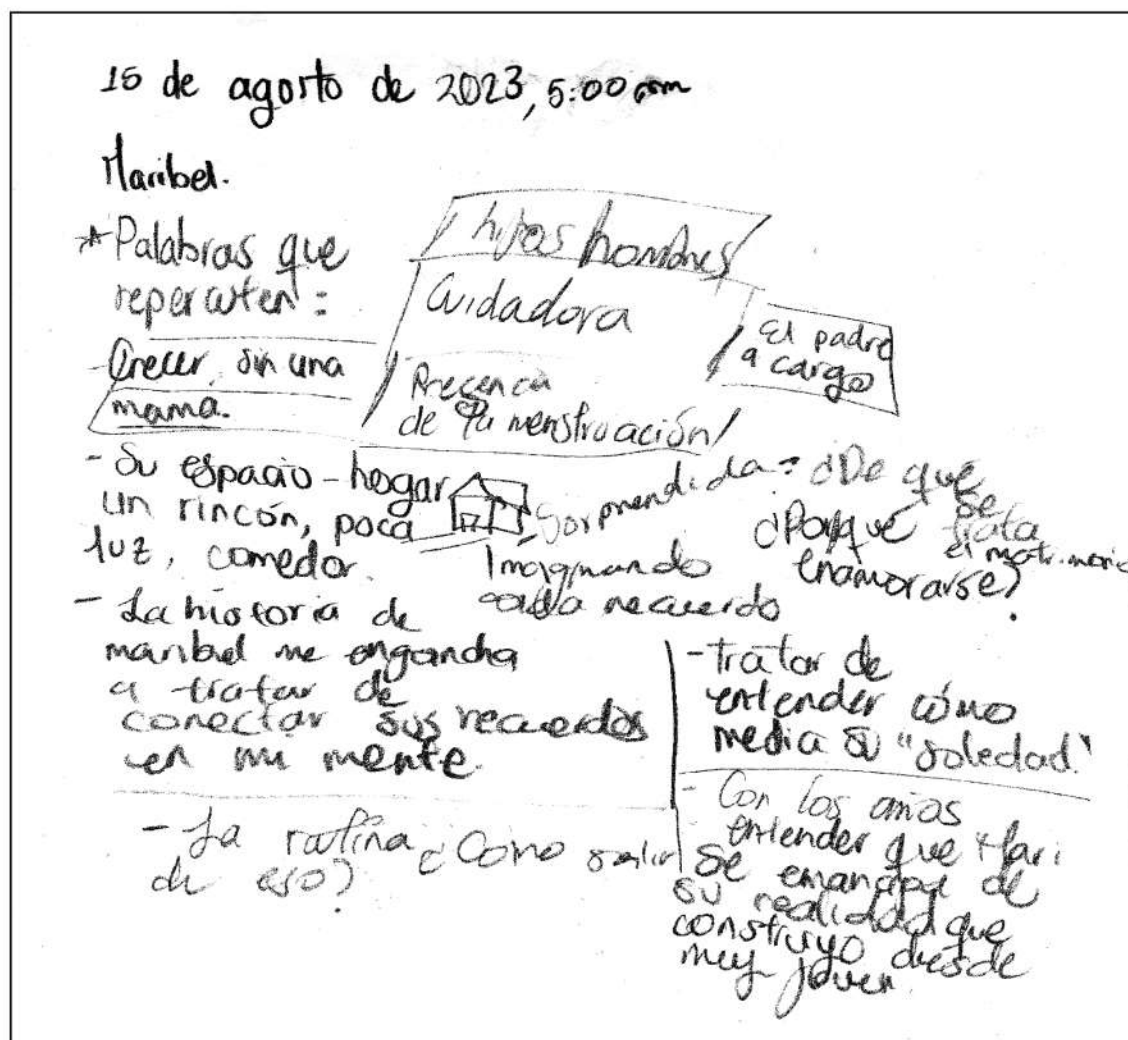 15 de agosto de 2023, 5:00 pm
Maribel.
* Palabras que
repercuten:
- Crecer sin una
mama.
hijos hombres
Cuidadora
Precencia
de la menstruación
El padre
a cargo
- Su espacio-hogar
un rincón, poca
luz, comedor.
Sorprendida: ¿De qué
se
trata
el matrimonio
¿Porque
enamorarse?
Imaginando
cada recuerdo
- La historia de
maribel me engancha
a tratar de
conectar sus recuerdos
en mi mente.
- tratar de
entender cómo
media su "soledad"
- La rutina ¿Como salir
de eso?
- Con los años
entender que Mari
se emancipa de
su realidad que
construyo desde
muy joven.